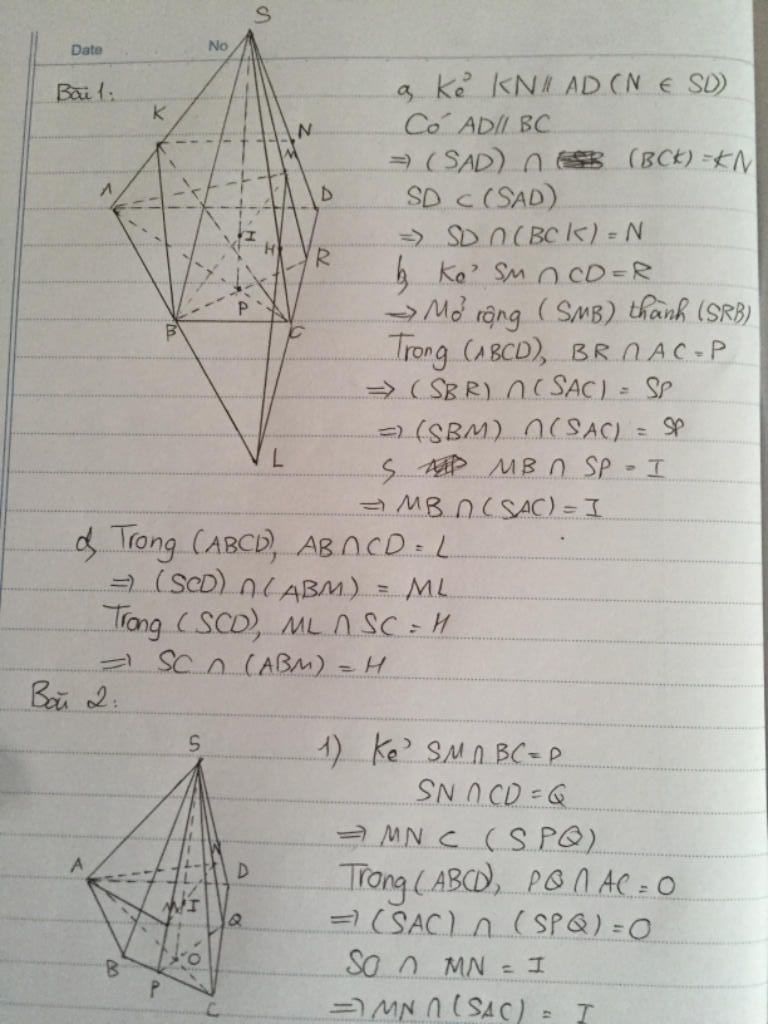 Date No
Bài 1:
S
K
N
M
A
D
I
H
R
P
B
C
L
a, Kẻ KN // AD (N ∈ SD)
Có AD // BC
⇒ (SAD) ∩ (BCK) = KN
SD ⊂ (SAD)
⇒ SD ∩ (BCK) = N
b, Kẻ SM ∩ CD = R
→ Mở rộng (SMB) thành (SRB)
Trong (ABCD), BR ∩ AC = P
⇒ (SBR) ∩ (SAC) = SP
⇒ (SBM) ∩ (SAC) = SP
c, MB ∩ SP = I
⇒ MB ∩ (SAC) = I
d, Trong (ABCD), AB ∩ CD = L
⇒ (SCD) ∩ (ABM) = ML
Trong (SCD), ML ∩ SC = H
⇒ SC ∩ (ABM) = H
Bài 2:
S
A
N
D
M
I
Q
B
O
P
C
1) Kẻ SM ∩ BC = P
SN ∩ CD = Q
⇒ MN ⊂ (SPQ)
Trong (ABCD), PQ ∩ AC = O
⇒ (SAC) ∩ (SPQ) = O
SO ∩ MN = I
⇒ MN ∩ (SAC) = I